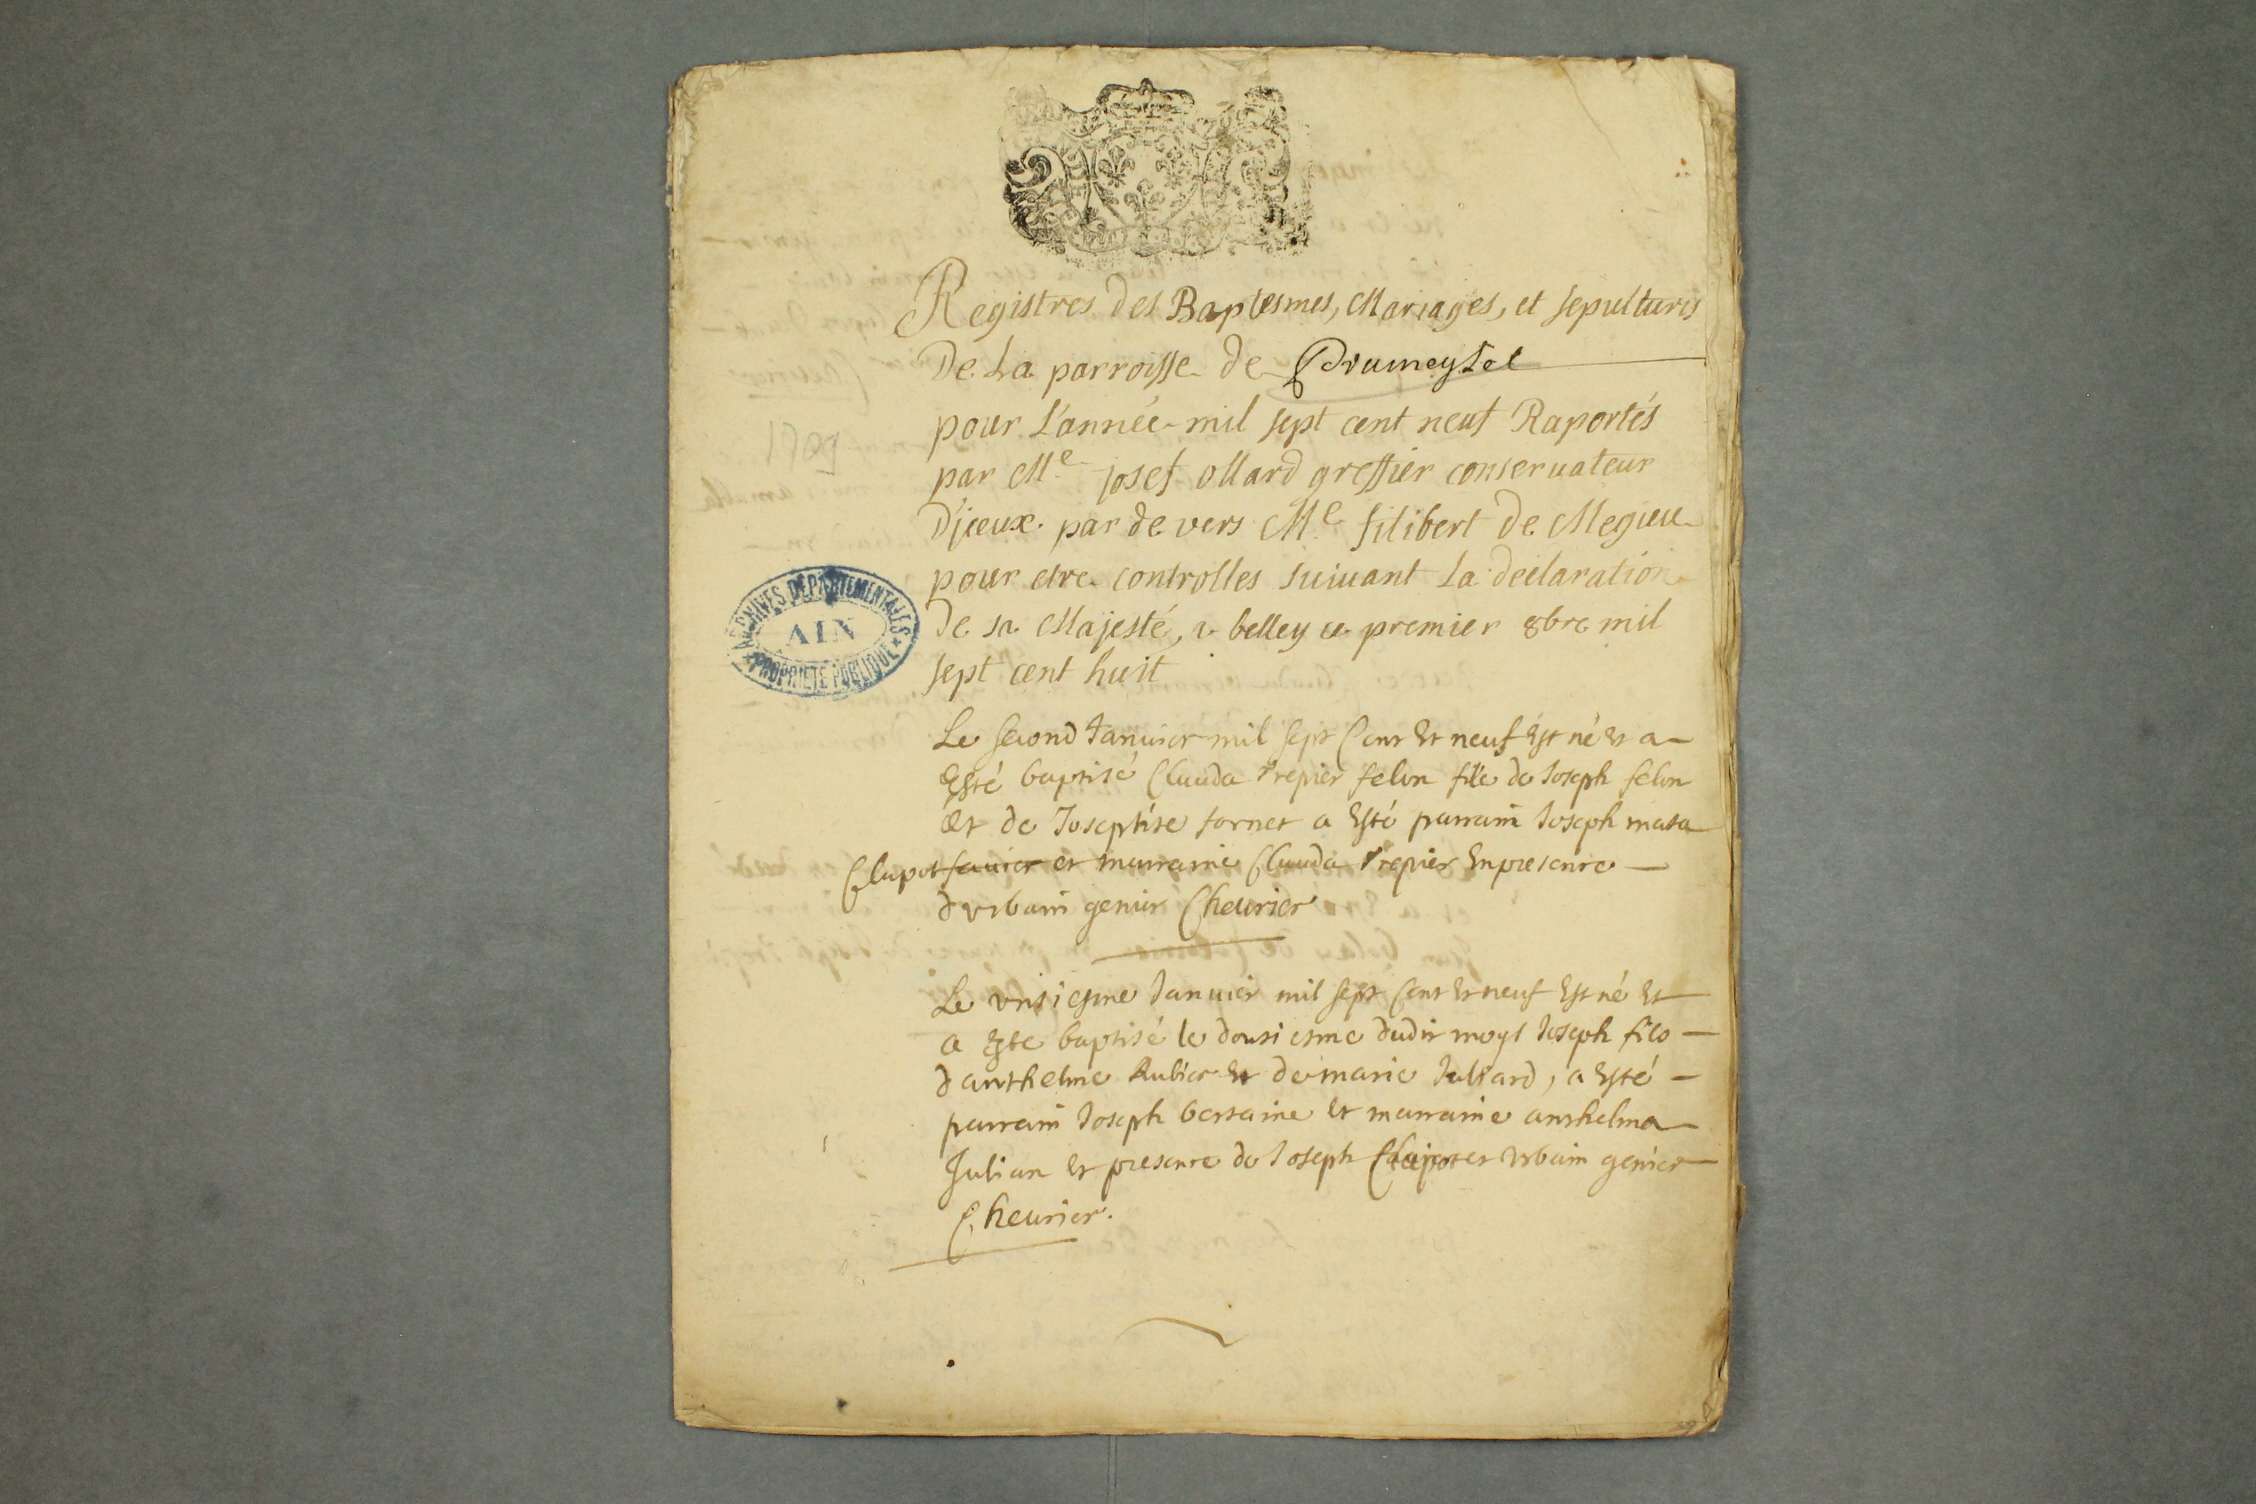 Registres des Baptesmes, Mariages, et sepultures
De La parroisse de Prumeysel
pour L'année mil sept cent neuf Raportés
par Me josef ollard greffier conseruateur
D'jceux par de vers Me filibert de Megieu
pour etre controlles suiuant La declaration
De sa Majesté, a belley ce premier 8bre mil
sept cent huit
ARCHIVES DÉPARTEMENTALES
AIN
PROPRIÉTÉ PUBLIQUE
Le second Januier mil sept Cent Et neuf Est né Et a
Esté baptisé Clauda Trepier felon fille de Joseph felon
Et de Josephte fornet a Esté parrain Joseph
Clapot et marraine Clauda Trepier En presence
d'vrbain genier Cheurier
Le vnsiesme Januier mil sept Cent Et neuf Est né Et
a Esté baptisé le dousiesme dudit moys Joseph fils
d'anthelme Rubier Et de marie Julliard, a Esté
parrain Joseph bertaine Et marraine anthelma
Julian Et presence de Joseph Clapot et Vrbain genier
Cheurier.